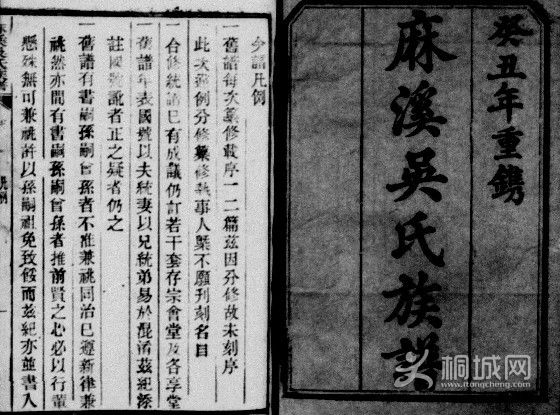 癸丑年重鐫
麻溪吳氏族譜
今譜凡例
一舊譜每次纂修載序一二篇茲因分修故未刻序
此次舊例分修纂修執事人槩不願刊刻名目
一合修統譜已有成議仍訂若干套存宗會堂及各享堂
一舊譜年表國號以夫統妻以兄統弟易於混淆茲紀添
註國號訛者正之疑者仍之
一舊譜有書嗣孫嗣曾孫者不准兼祧同治已遵新律兼
祧然亦間有書嗣孫嗣曾孫者推前賢之心必以行輩
懸殊無可兼祧許以孫嗣祖免致餒而茲紀亦並書入
桐城网
www.ttongcheng.com